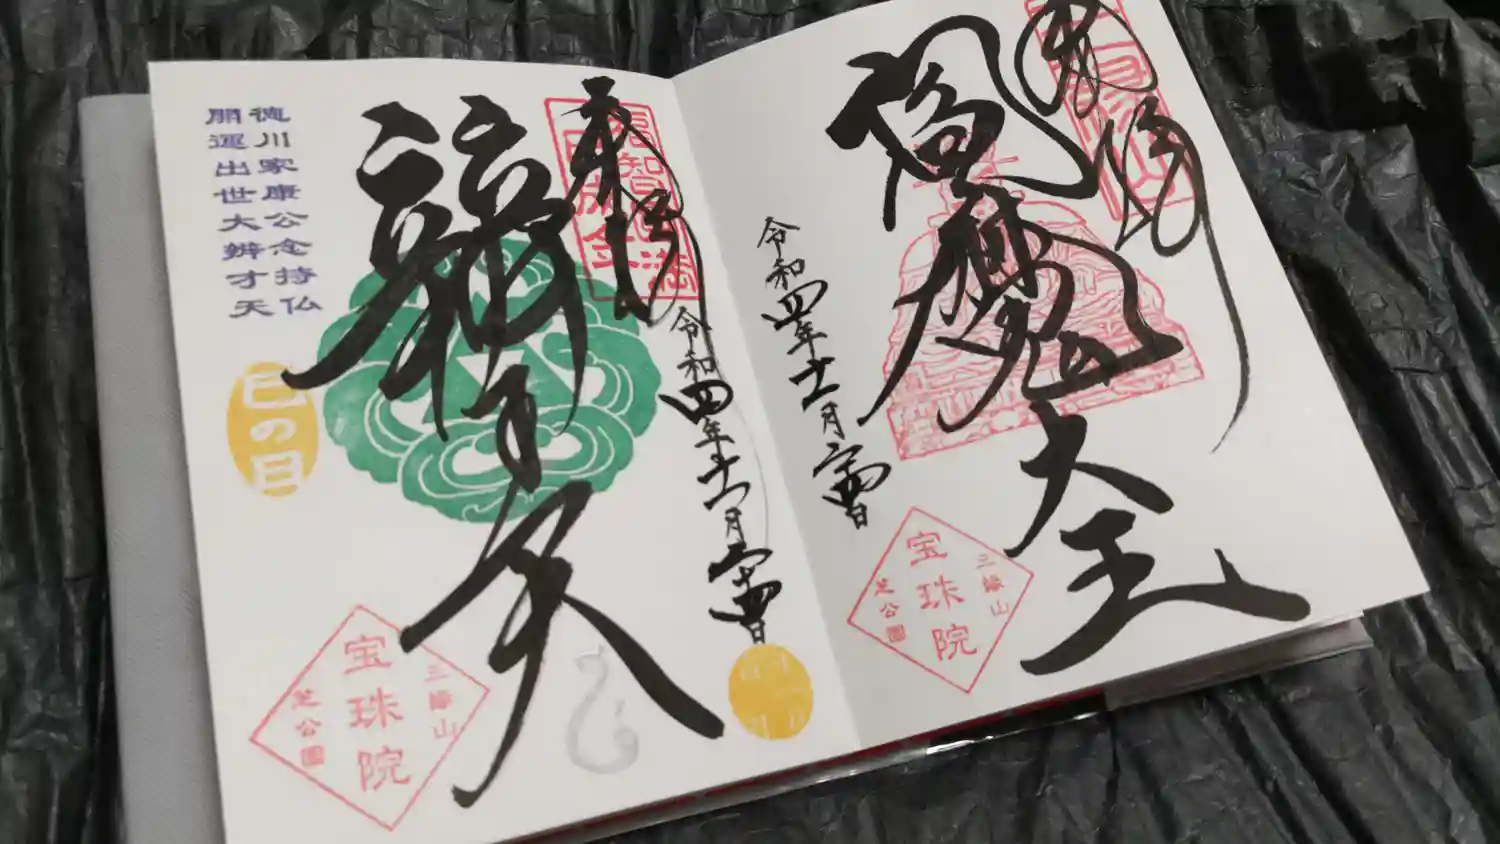 奉拝
閻魔大王
令和四年十一月
三縁山
宝珠院
芝公園
奉拝
辨才天
令和四年十一月
徳川家康公念持仏
開運出世大辨才天
巳の日
三縁山
宝珠院
芝公園